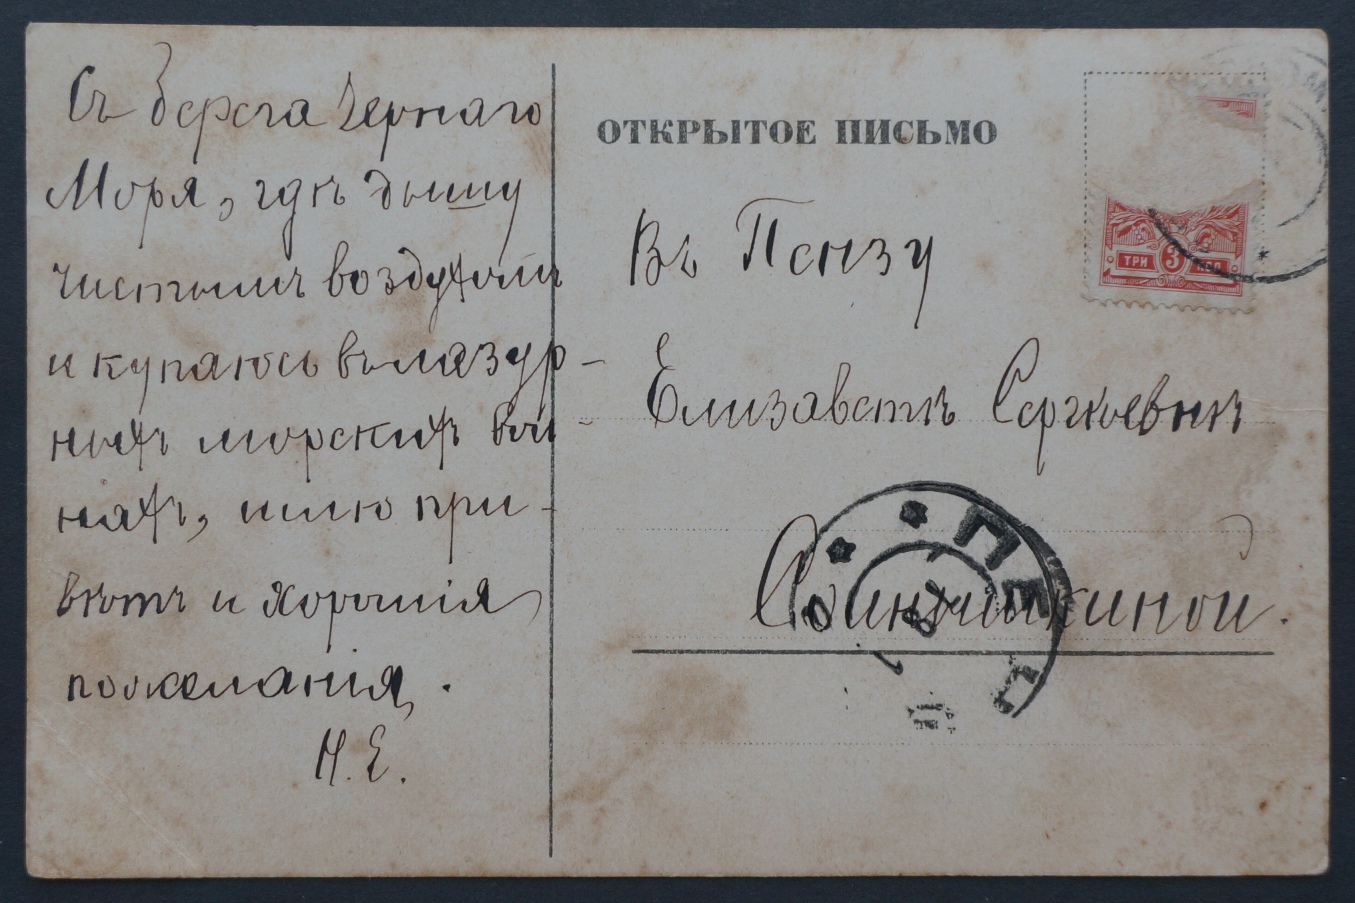 Съ берега Чернаго
Моря, гдѣ дышу
чистымъ воздухомъ
и купаюсь въ лазур-
ныхъ морскихъ вол-
нахъ, шлю при-
вѣтъ и хорошія
пожеланія.
Н.Е.
ОТКРЫТОЕ ПИСЬМО
ТРИ 3 КОП
Въ Пензу
Елизаветѣ Сергѣевнѣ